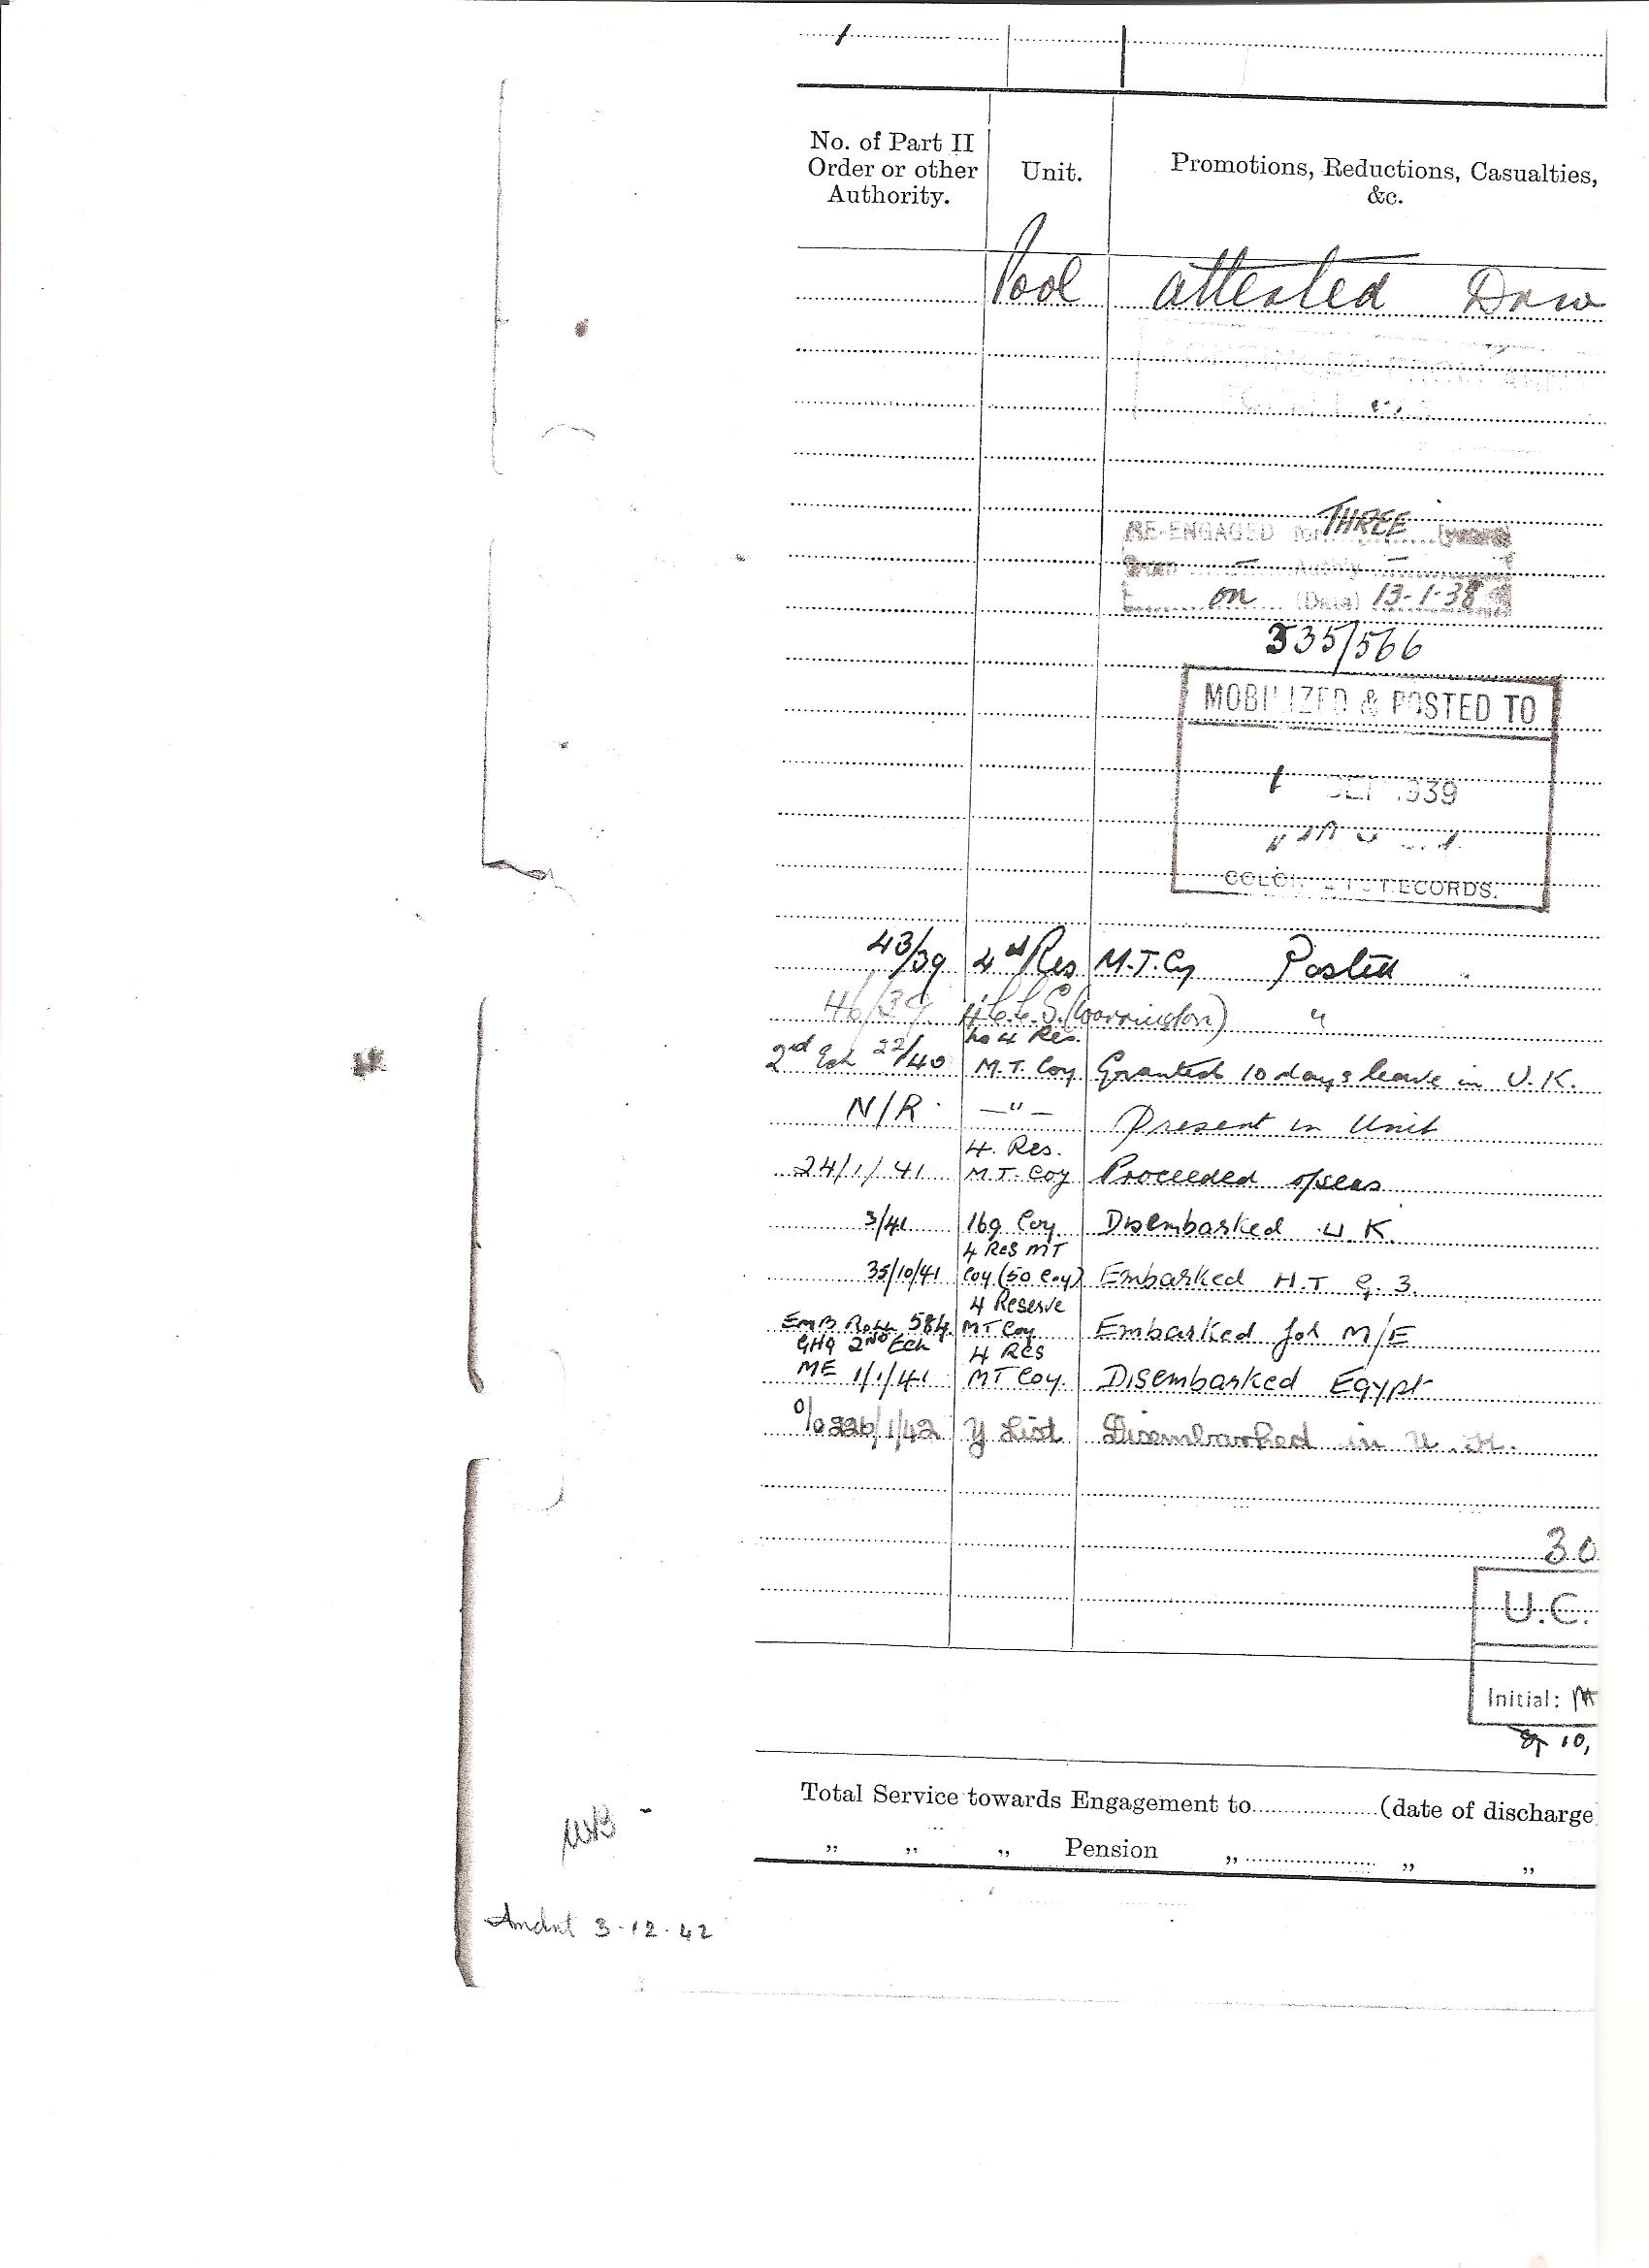 No. of Part II
Order or other
Authority.
Unit.
Promotions, Reductions, Casualties,
&c.
Pool attested
RE-ENGAGED for THREE (years)
on (Date) 13-1-38
335/566
MOBILIZED & POSTED TO
1 SEP 1939
RECORDS.
43/39 M.T. Cy Posted
46/39 (Warrington) "
4 Res.
2nd Ech 22/40 M.T. Coy Granted 10 days leave in U.K.
N/R —"— Present in Unit
4. Res.
24/1/41 M.T. Coy Proceeded o/seas
3/41 169 Coy Disembarked U.K.
4 Res MT
35/10/41 Coy (50 Coy) Embarked H.T. G. 3.
4 Reserve
Emb Roll 584. MT Coy Embarked for M/E
GHQ 2ND Ech 4 Res
ME 1/1/41 MT Coy. Disembarked Egypt
226/1/42 Y List Disembarked in U.K.
30
U.C.
Initial:
10,
Total Service towards Engagement to (date of discharge
„ „ „ Pension „ „ „
Amdnt 3-12-42